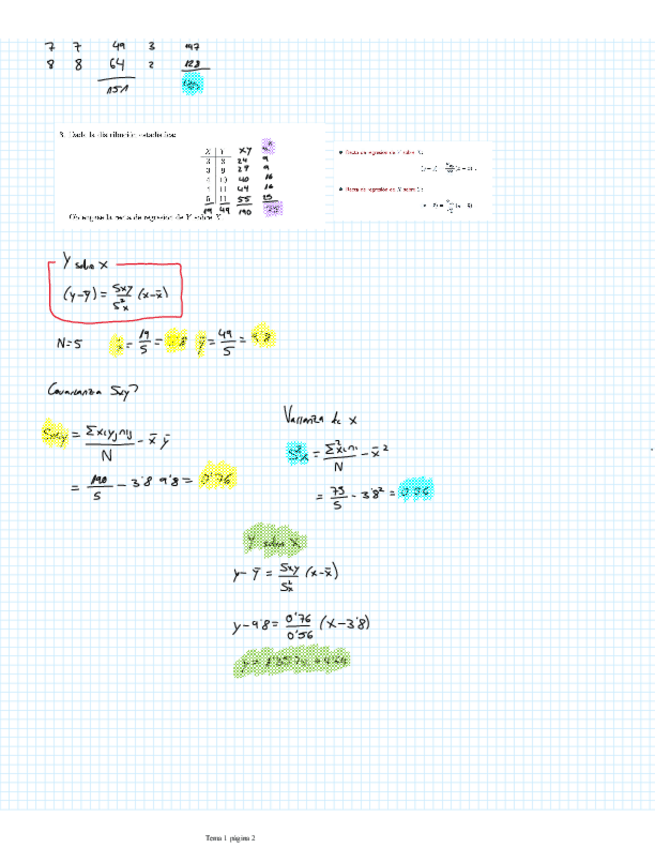 7 7 49 3 147
8 8 64 2 128
151
3. Dada la distribución estadística:
X Y XY
3 8 24 9
3 9 27 9
4 10 40 16
4 11 44 16
5 11 55 25
19 49 190
Obtengase la recta de regresión de Y sobre X
• Recta de regresión de Y sobre X:
• Recta de regresión de X sobre Y:
Y sobre X
(y-ȳ) = Sxy/S²x (x-x̄)
N=5 x̄ = 19/5 = 3'8 ȳ = 49/5 = 9'8
Covarianza Sxy?
Sxy = Σxiyjnij/N - x̄ ȳ
= 190/5 - 3'8 9'8 = 0'76
Varianza de x
S²x = Σx²ini/N - x̄²
= 75/5 - 3'8² = 0'56
Y sobre X
y-ȳ = Sxy/S²x (x-x̄)
y-9'8 = 0'76/0'56 (x-3'8)
Tema 1 página 2